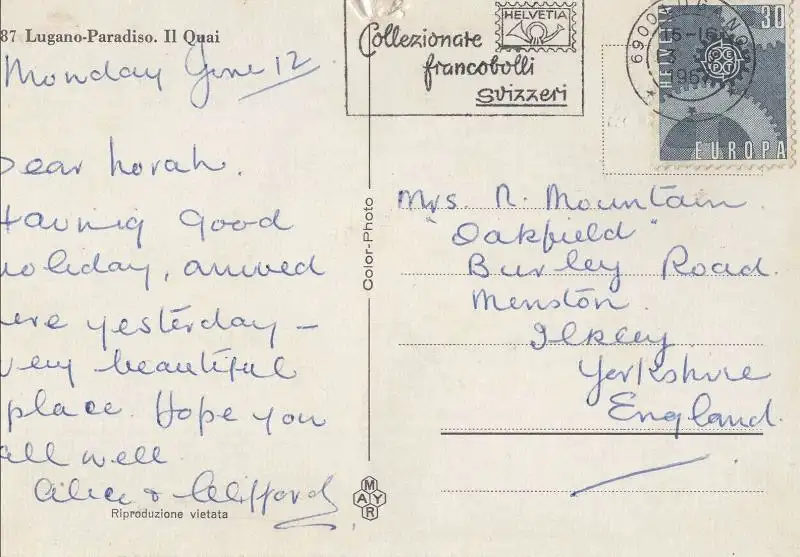 87 Lugano-Paradiso. Il Quai
Monday June 12
Dear Norah.
Having Good
holiday, arrived
here yesterday –
very beautiful
place. Hope you
all well
Alice & Clifford.
Riproduzione vietata
Color-Photo
MAYR
Collezionate
francobolli
svizzeri
HELVETIA
6900 LUGANO
15-16
13
196
HELVETIA
30
CEPT
EUROPA
Mrs. N. Mountain.
"Oakfield"
Burley Road.
Menston.
Ilkley.
Yorkshire
England.